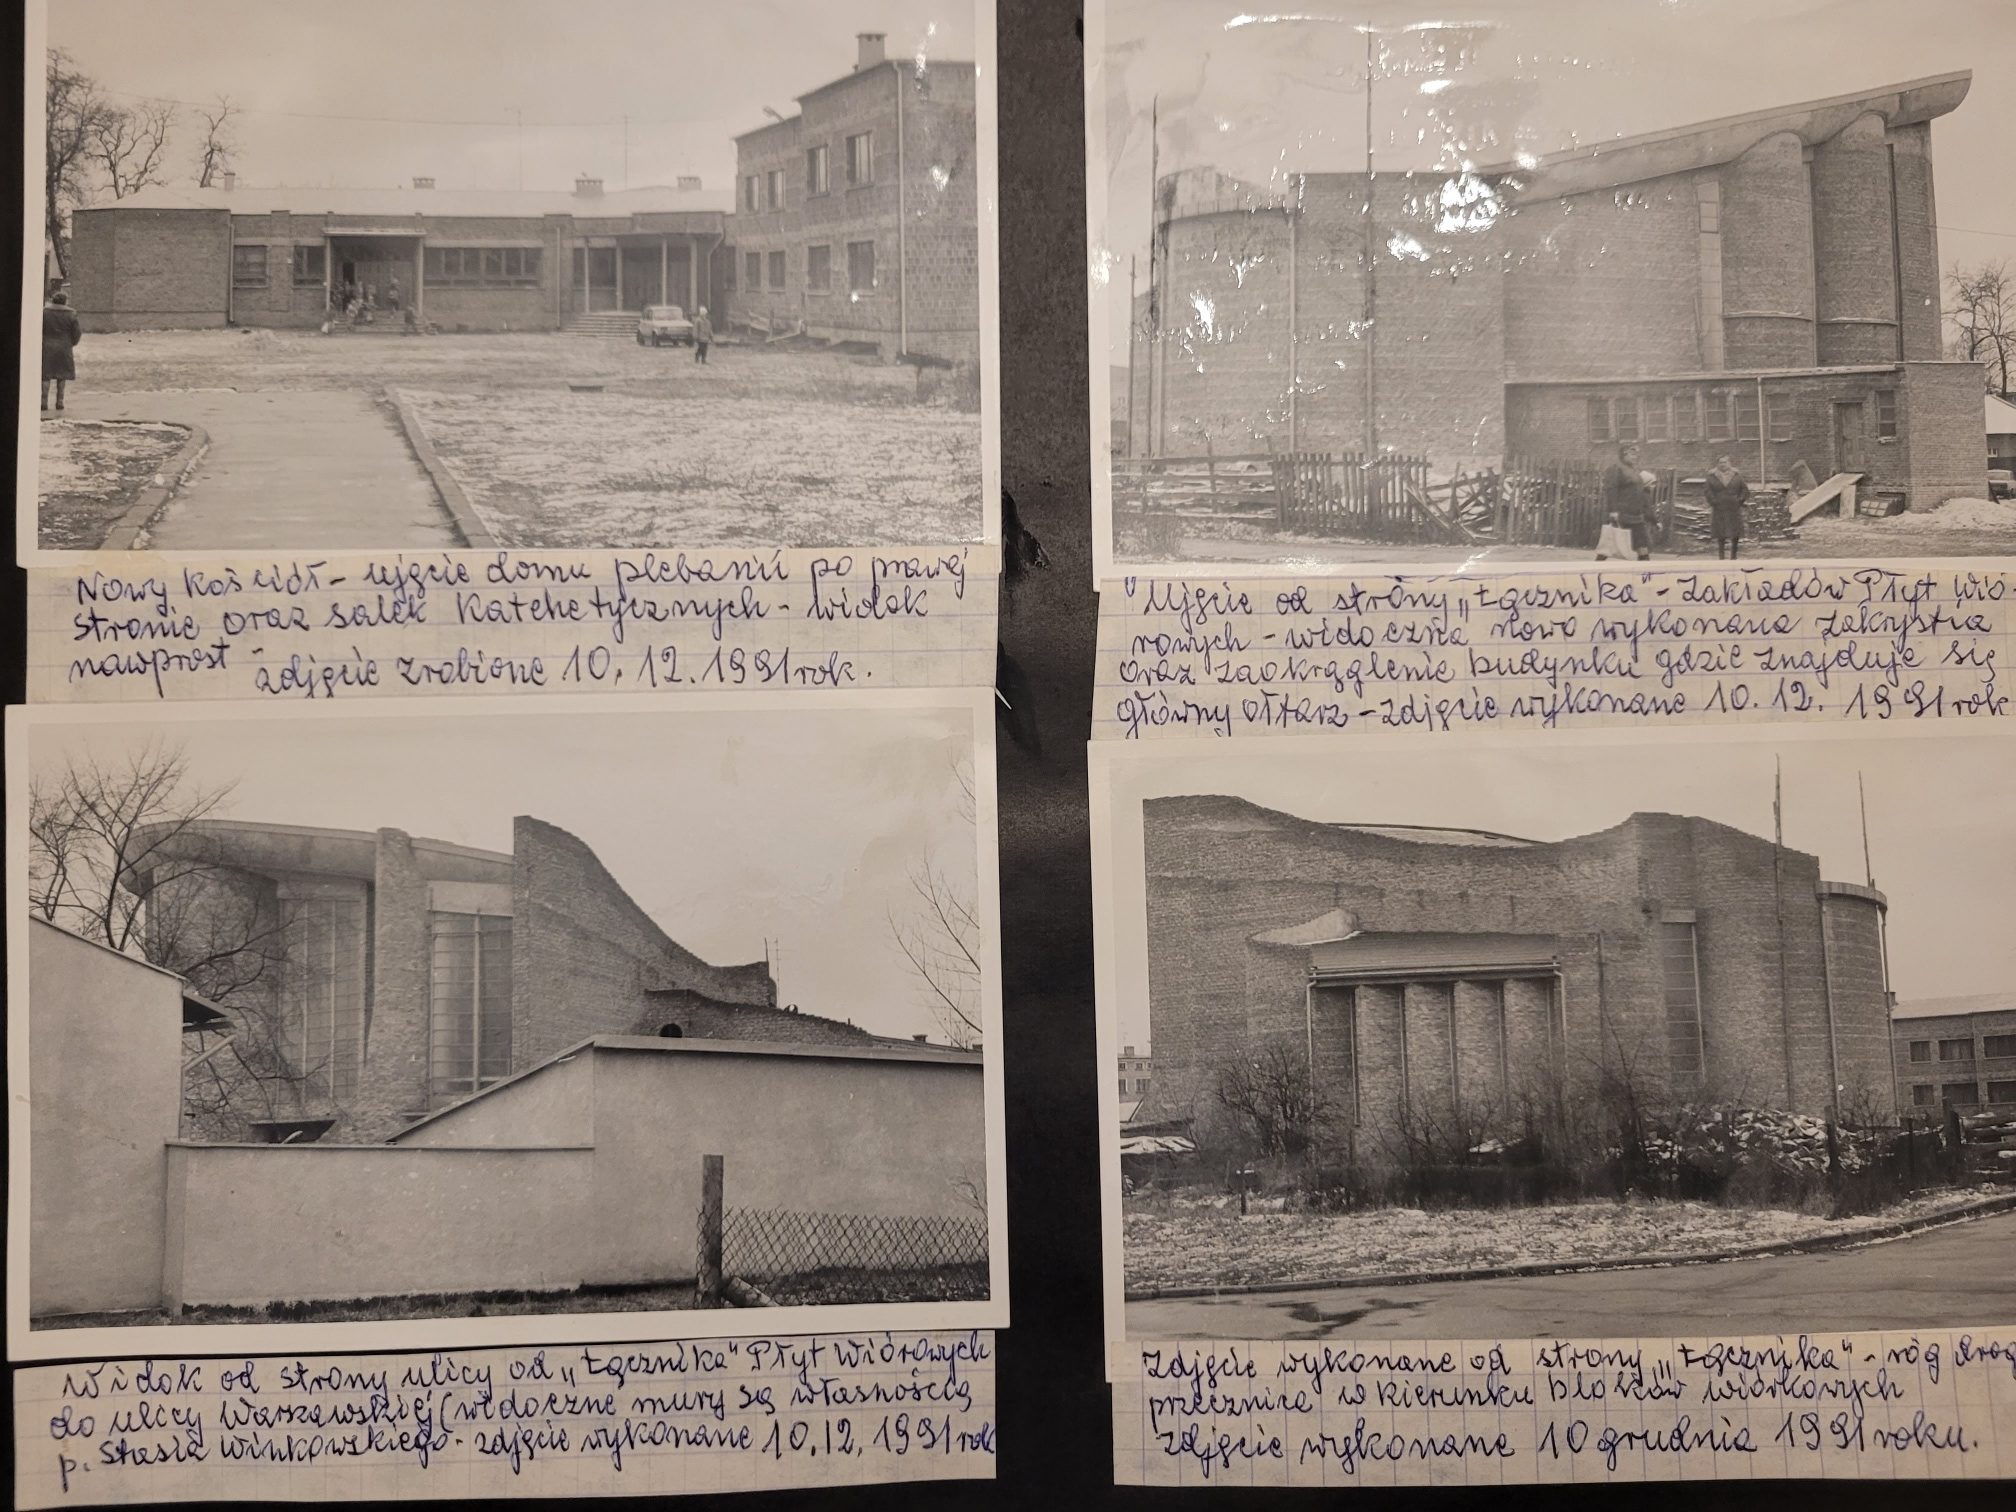 Nowy kościół - ujęcie domu plebanii po prawej
stronie oraz salek katechetycznych - widok
nawprost - zdjęcie zrobione 10.12.1991 rok.
Ujęcie od strony „Łącznika" - Zakładów Płyt Wió-
rowych - widoczna nowo wykonana zakrystia
oraz zaokrąglenie budynku gdzie znajduje się
główny ołtarz - zdjęcie wykonane 10.12.1991 rok
Widok od strony ulicy od „Łącznika" Płyt Wiórowych
do ulicy Warszawskiej (widoczne mury są własnością
p. Stasia Winkowskiego - zdjęcie wykonane 10.12.1991 rok
Zdjęcie wykonane od strony „Łącznika" - róg drog
przecznica w kierunku bloków wiórkowych
Zdjęcie wykonane 10 grudnia 1991 roku.